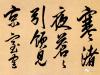 寒渚
夜蒼蒼
引領見
京室